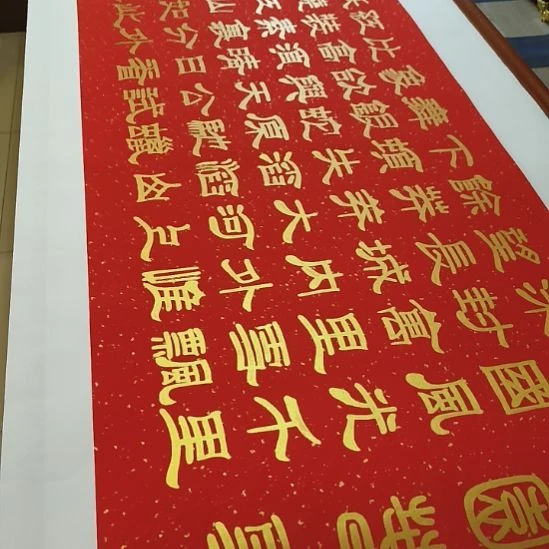 國風光千里
冰封萬里雪飄
望長城内外惟
餘莽莽大河上
下頓失滔滔山
舞銀蛇原馳蠟
象欲與天公試
比高須晴日看
裝素裹分外
山如此